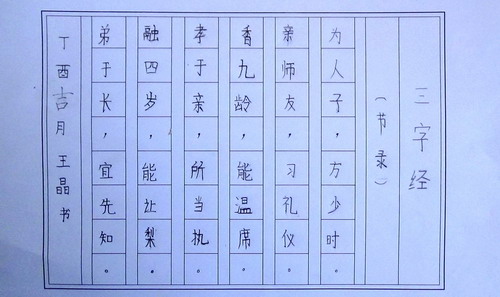 三字经
（节录）
为人子，方少时。
亲师友，习礼仪
香九龄，能温席。
孝于亲，所当执。
融四岁，能让梨。
弟于长，宜先知。
丁酉吉月王晶书